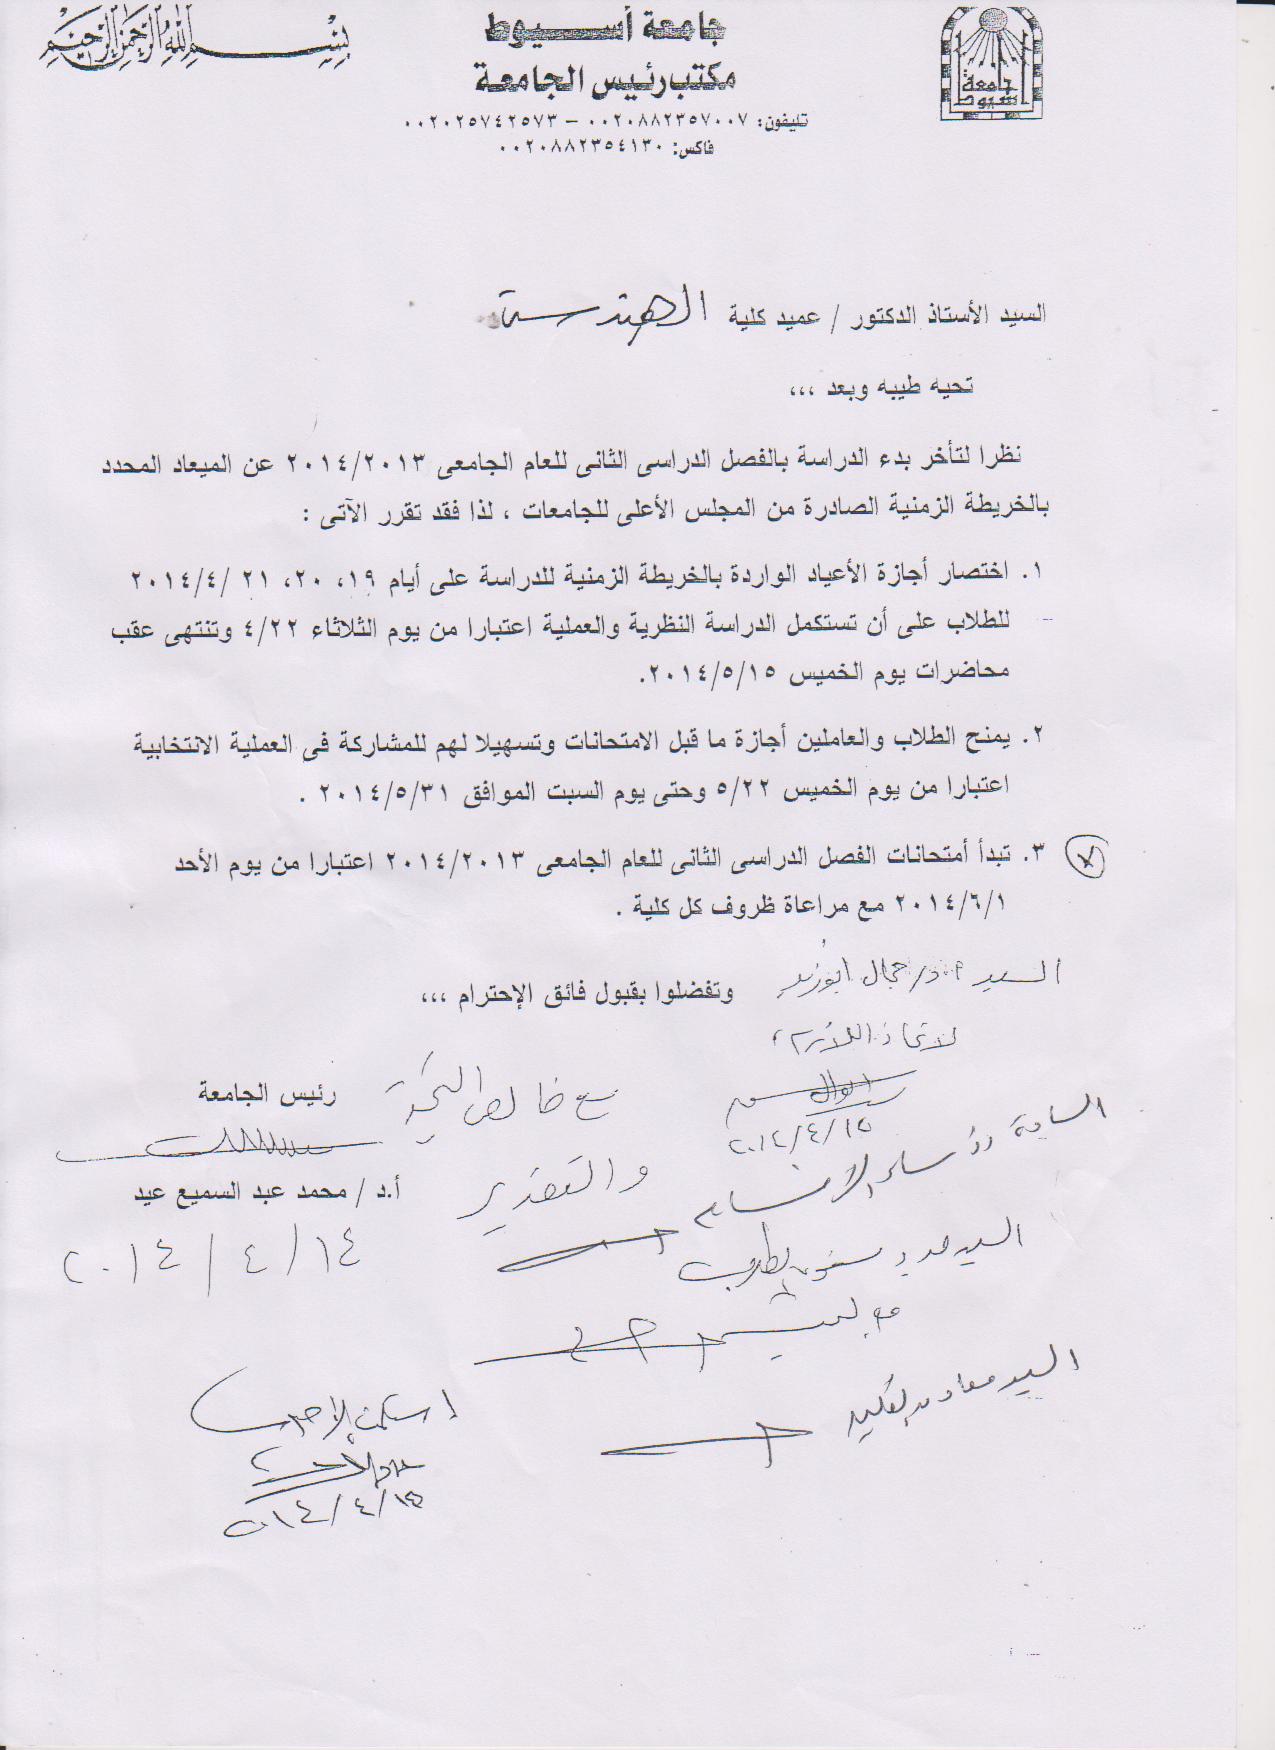 بسم الله الرحمن الرحيم
جامعة أسيوط
جامعة أسيوط
مكتب رئيس الجامعة
تليفون: ٠٠٢٠٨٨٢٣٥٧٠٠٧ – ٠٠٢٠٢٥٧٤٢٥٧٣
فاكس: ٠٠٢٠٨٨٢٣٥٤١٣٠
السيد الأستاذ الدكتور / عميد كلية الهندسة
تحيه طيبه وبعد ،،،
نظرا لتأخر بدء الدراسة بالفصل الدراسى الثانى للعام الجامعى ٢٠١٤/٢٠١٣ عن الميعاد المحدد
بالخريطة الزمنية الصادرة من المجلس الأعلى للجامعات ، لذا فقد تقرر الآتى :
١. اختصار أجازة الأعياد الواردة بالخريطة الزمنية للدراسة على أيام ١٩، ٢٠، ٢١ /٢٠١٤/٤
للطلاب على أن تستكمل الدراسة النظرية والعملية اعتبارا من يوم الثلاثاء ٤/٢٢ وتنتهى عقب
محاضرات يوم الخميس ٢٠١٤/٥/١٥.
٢. يمنح الطلاب والعاملين أجازة ما قبل الامتحانات وتسهيلا لهم للمشاركة فى العملية الانتخابية
اعتبارا من يوم الخميس ٥/٢٢ وحتى يوم السبت الموافق ٢٠١٤/٥/٣١ .
٣. تبدأ أمتحانات الفصل الدراسى الثانى للعام الجامعى ٢٠١٤/٢٠١٣ اعتبارا من يوم الأحد
٢٠١٤/٦/١ مع مراعاة ظروف كل كلية .
السيد أ.د/ جمال ابوزيد
وتفضلوا بقبول فائق الإحترام ،،،
لاتخاذ اللازم
مع خالص التحية
رئيس الجامعة
والتقدير
السادة رؤساء الأقسام
أ.د / محمد عبد السميع عيد
٢٠١٤/٤/١٤
السيد
٢٠١٤/٤/١٥